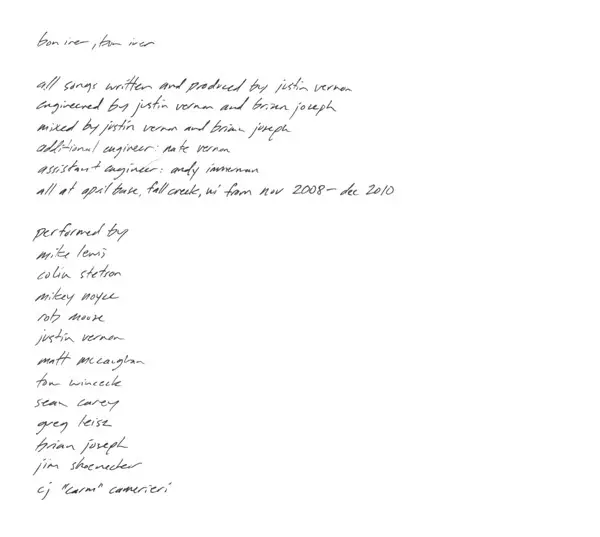 bon iver, bon iver
all songs written and produced by justin vernon
engineered by justin vernon and brian joseph
mixed by justin vernon and brian joseph
additional engineer: nate vernon
assistant engineer: andy immerman
all at april base, fall creek, wi from nov 2008 – dec 2010
performed by
mike lewis
colin stetson
mikey noyce
rob moose
justin vernon
matt mccaughan
tom wincek
sean carey
greg leisz
brian joseph
jim shoenecker
cj "carm" camerieri